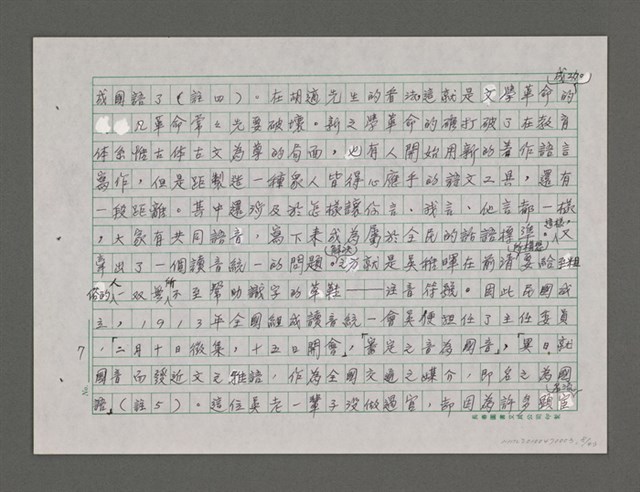 成功。
成國語了(註四)。在胡適先生的看法這就是文學革命的
凡革命常々先要破壞。新文學革命的確打破了在教育
体系惟古体古文為尊的局面，也有人開始用新的著作語言
寫作，但是距製造一種眾人皆得心應手的語文工具，還有
一段距離。其中還涉及於怎樣讓你言、我言、他言都一樣
，大家有共同語音，寫下來成為屬於全民的話語標準。又
牽出了一個讀音統一的問題。就是吳稚暉在前清要給
俗的人一双無所不至幫助識字的草鞋——注音符號。因此民國成
立，1913年全國組成讀音統一會吳便担任了主任委員
，「二月十日徵集，十五日開會」，「審定之音為國音」，「異日就
國音而發近文之雅語，作為全國交通之媒介，即名之為國
語」(註5)。這位吳老一輩子沒做過官，卻因為許多
7